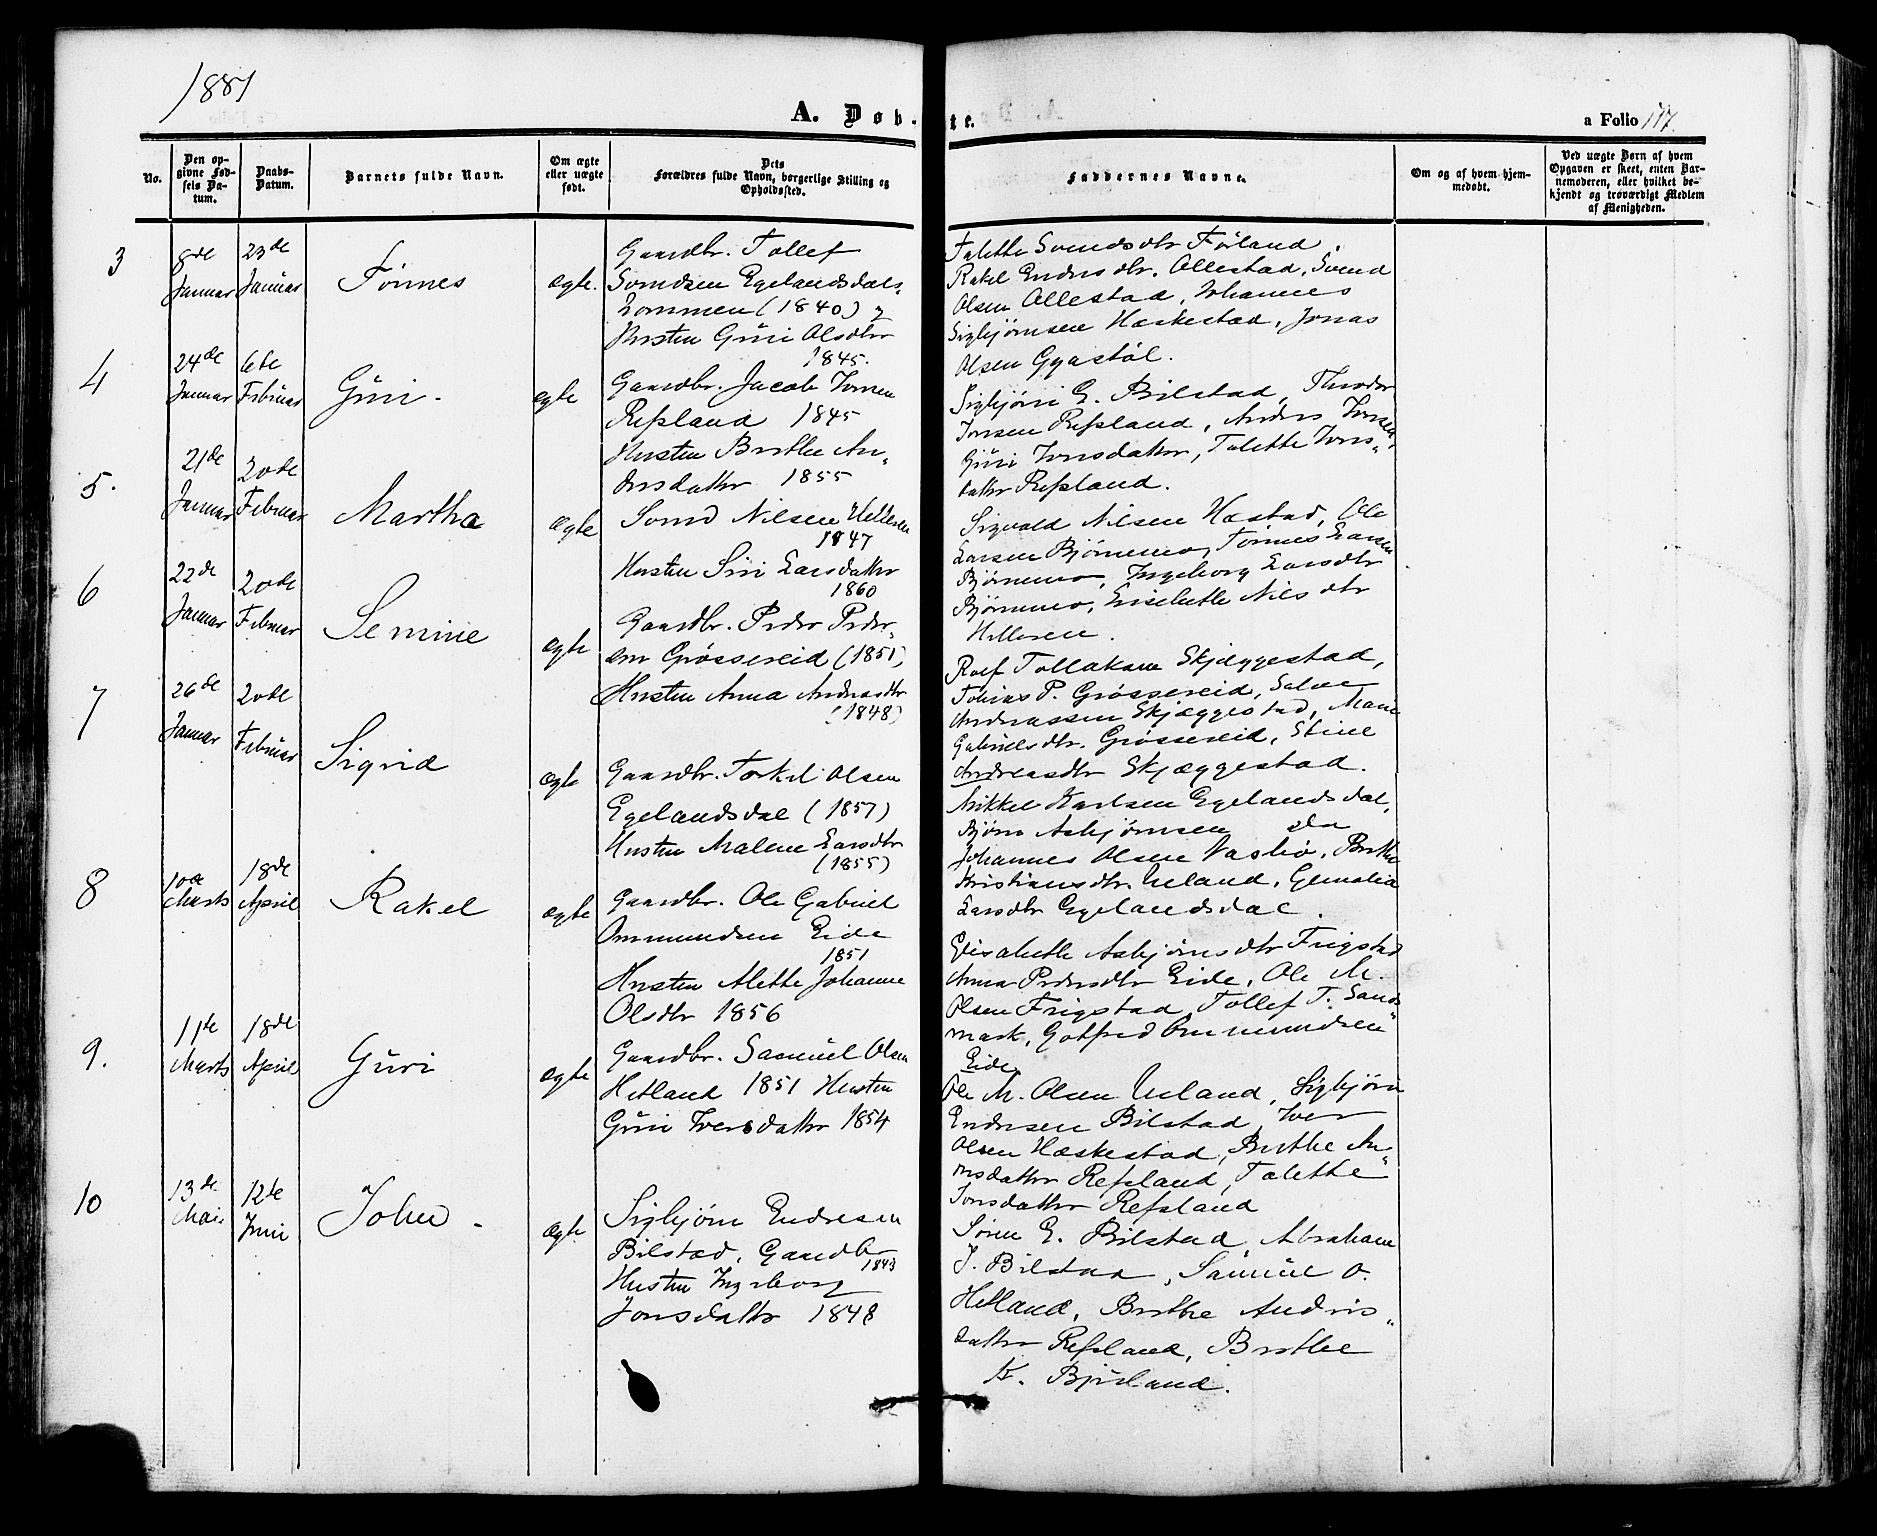 1881
A. Døbte.
a Folio 117.
No.
Den opgivne Fødsels Datum.
Daabs-Datum.
Barnets fulde Navn.
Om ægte eller uægte født.
Dets Forældres fulde Navn, borgerlige Stilling og Opholdssted.
Faddernes Navne.
Om og af hvem hjemmedøbt.
Ved uægte Børn af hvem Opgaven er skeet, enten Barnemoderen, eller hvilket bekjendt og troværdigt Medlem af Menigheden.
3
8de Januar
23de Januar
Tønnes
ægte.
Gaardbr. Tollef
Svendsen Egelandsdals-
kommen (1840) og
Husten Guri Olsdtr
1845.
Talette Svendsdtr Førland,
Rakel Endresdtr. Ollestad, Svend
Olsen Ollestad, Johannes
Sigbjørnsen Hæskestad, Jonas
Olsen Gyastøl.
4
24de Januar
6te Februar
Guri -
ægte
Gaardbr. Jacob Jonsen
Refsland 1845
Husten Berthe An„
dersdatter 1855
Sigbjørn E. Bilstad, Theodor
Jonsen Refsland, Anders Jonsen,
Guri Jonsdatter, Talette Jons„
datter Refsland.
5.
21de Januar
20de Februar
Martha
ægte
Svend Nilsen Helleren
1847
Husten Siri Larsdatter
1860
Sigvald Nilsen Hæstad, Ole
Larsen Bjørnemo, Tønnes Larsen
Bjørnemo, Ingeborg Larsdtr
Bjørnemo, Lisebeth Nilsdtr
Helleren.
6
22de Januar
20de Februar
Semine
ægte
Gaardbr. Peder Peder„
sen Grøssereid (1851)
Husten Anna Andreasdtr
(1848)
Rolf Tollaksen Skjæggestad,
Tobias P. Grøssereid, Salve
Andreassen Skjæggestad, Maren
Gabrielsdtr. Grøssereid, Stine
Andreasdtr Skjæggestad.
7
26de Januar
20de Februar
Sigrid
ægte
Gaardbr. Torkel Olsen
Egelandsdal (1857)
Husten Malene Larsdtr
(1855)
Mikkel Karlsen Egelandsdal,
Bjørn Asbjørnsen sdn
Johannes Olsen Vasbø, Berthe
Kristiansdtr. Ueland,
Larsdtr Egelandsdal.
8
10de Marts
18de April
Rakel
ægte
Gaardbr. Ole Gabriel
Ommundsen Eide
1851
Husten Alette Johanne
Olsdtr 1856
Elisabeth Asbjørnsdtr Frigstad
Anna Pedersdtr Eide, Ole M.
Olsen Frigstad, Tollef T. Sand„
mark, Gotfred Ommundsen
Eide
9.
11te Marts
18de April
Guri
ægte
Gaardbr. Samuel Olsen
Hetland 1851 Husten
Guri Iversdatter 1854
Ole M. Olsen Ueland, Sigbjørn
Endresen Bilstad, Iver
Olsen Hæskestad, Berthe An„
dersdatter Refsland, Talette
Jonsdatter Refsland
10
13de Mai
12te Juni
John -
ægte
Sigbjørn Endresen
Bilstad, Gaardbr
1843
Husten Ingeborg
Jonsdatter 1848
Søren E. Bilstad, Abraham
J. Bilstad, Samuel O.
Hetland, Berthe Andris„
datter Refsland, Berthe
K. Bjuland.